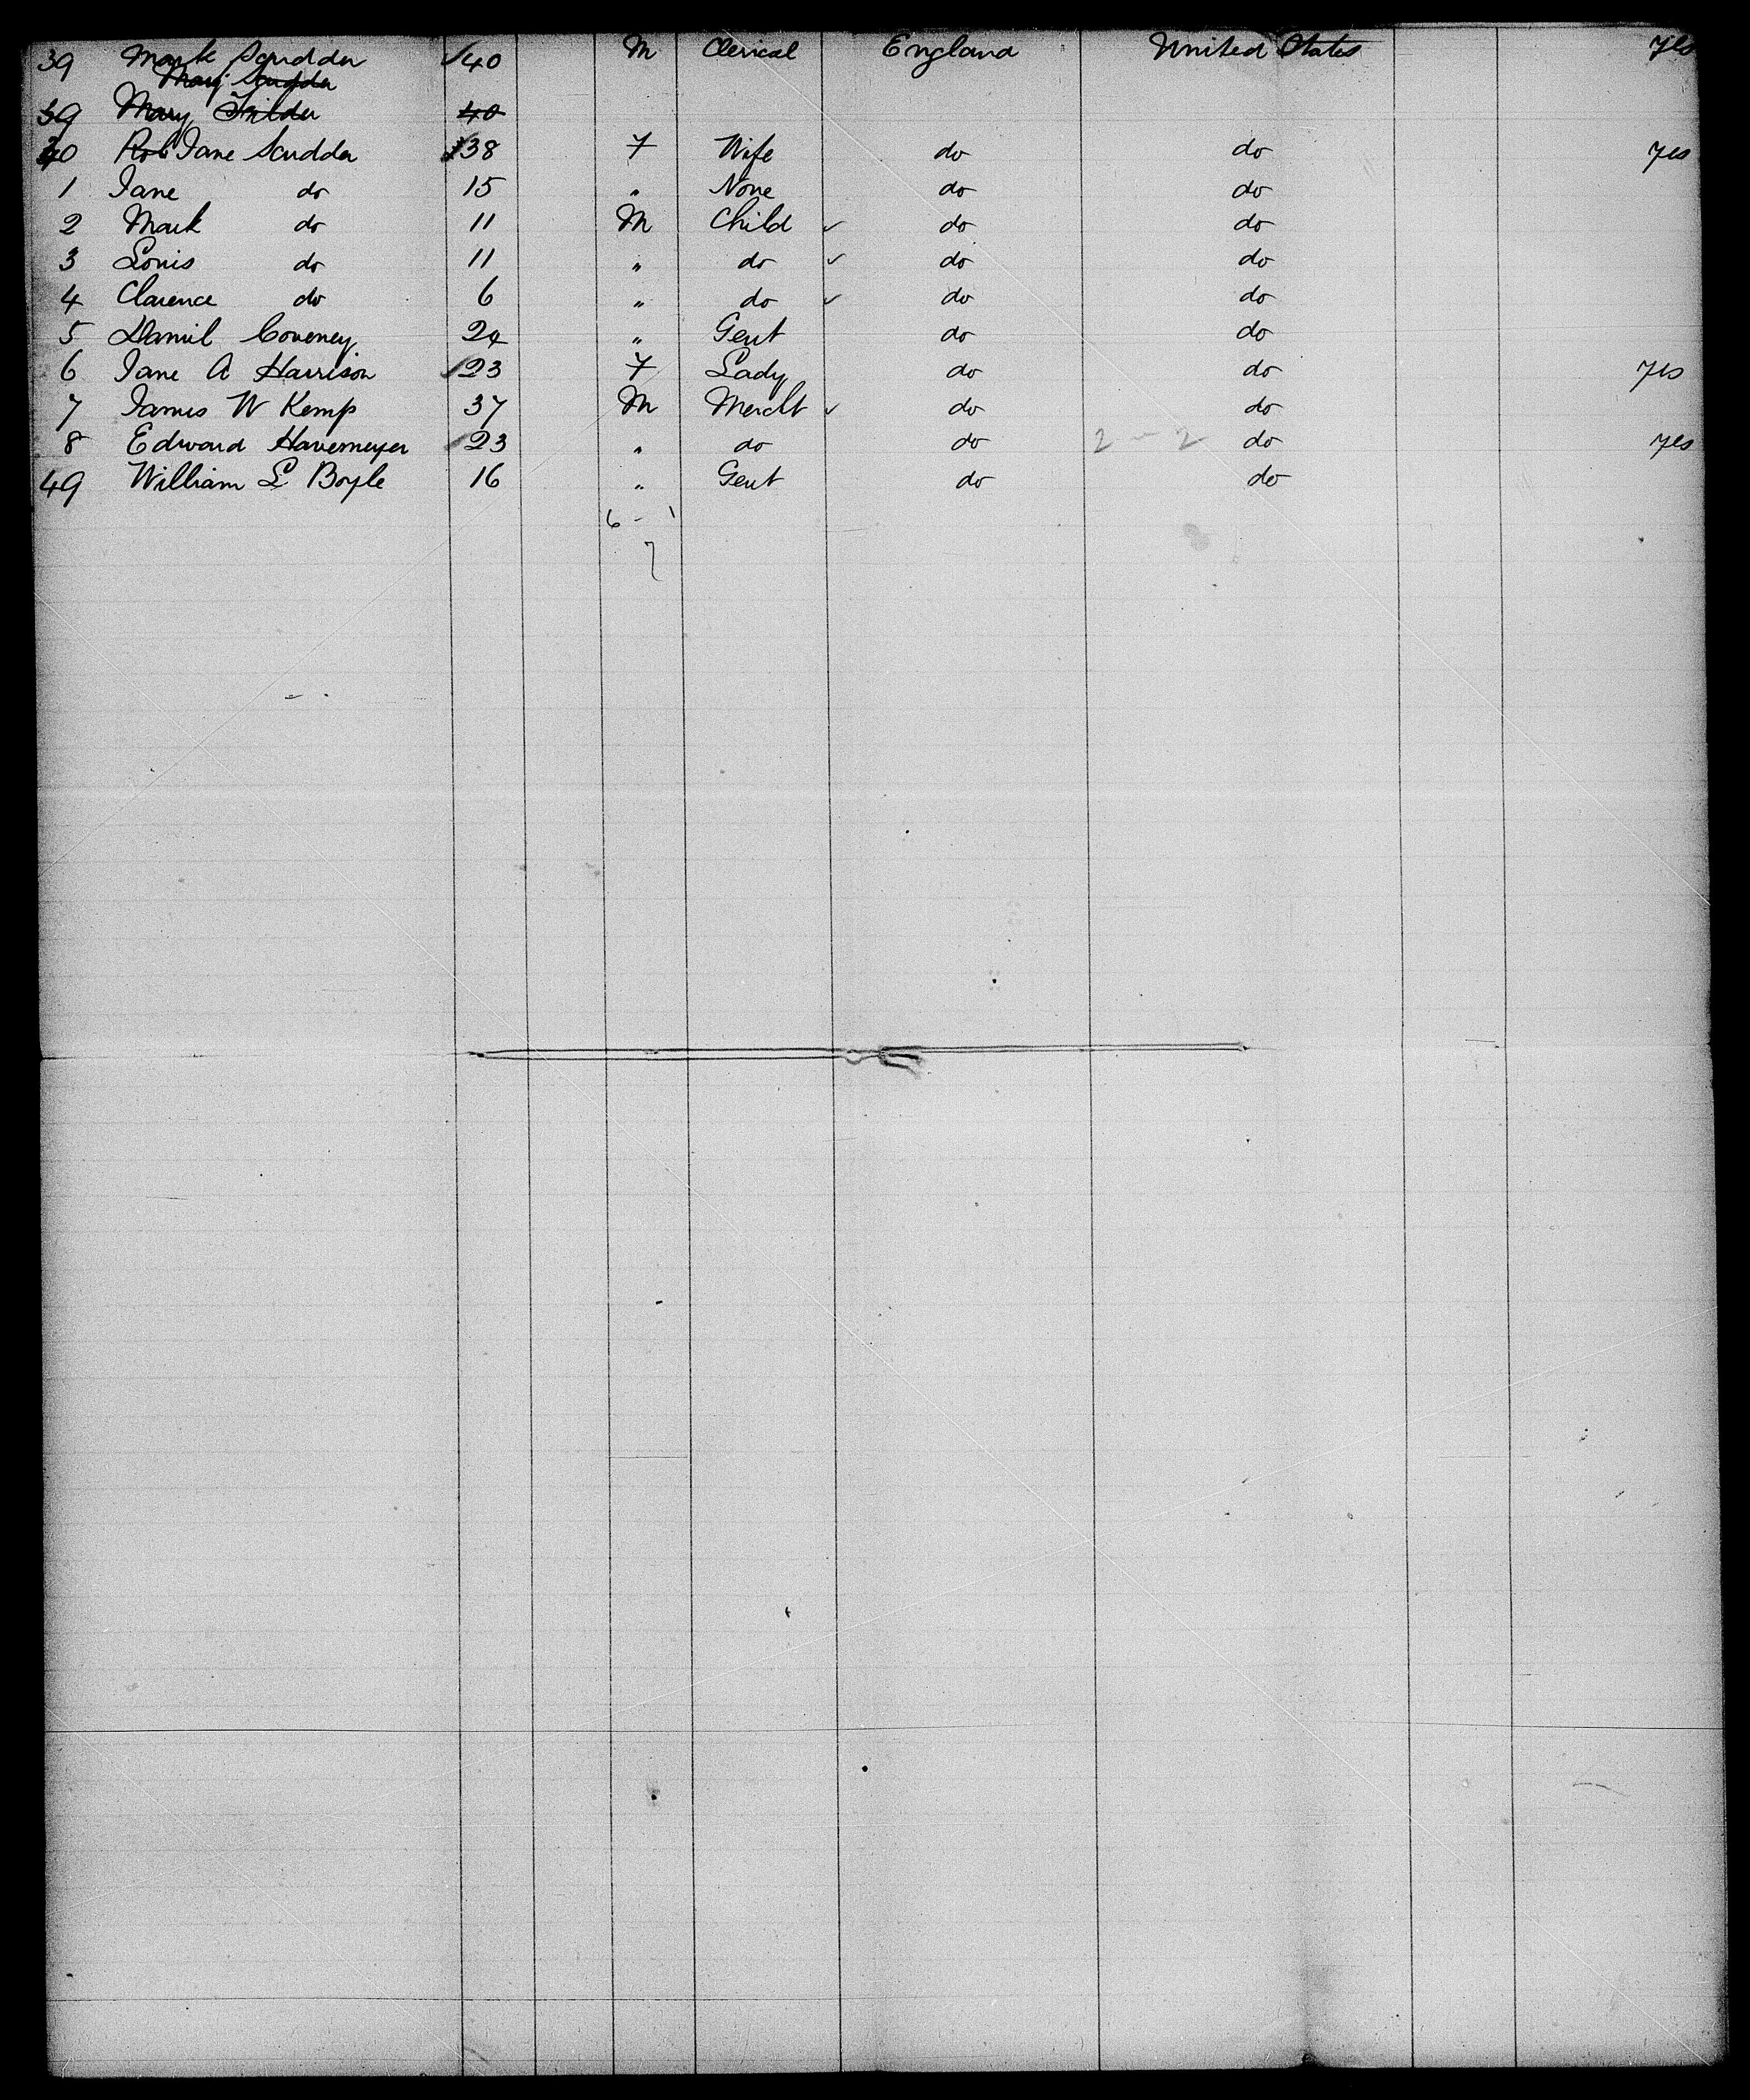 39 Mark Scudder 40 M Clerical England United States yes
Mary Scudder
39 Mary 40
40 Rob Jane Scudder 38 F Wife do do yes
1 Jane do 15 " None do do
2 Mark do 11 M Child ✓ do do
3 Louis do 11 " do ✓ do do
4 Clarence do 6 " do ✓ do do
5 Daniel Coveney 24 " Gent do do
6 Jane A Harrison 23 F Lady do do yes
7 James W Kemp 37 M Mercht ✓ do do
8 Edward Havemeyer 23 " do do 2 - 2 do yes
49 William L Boyle 16 " Gent do do
6 - 1
7